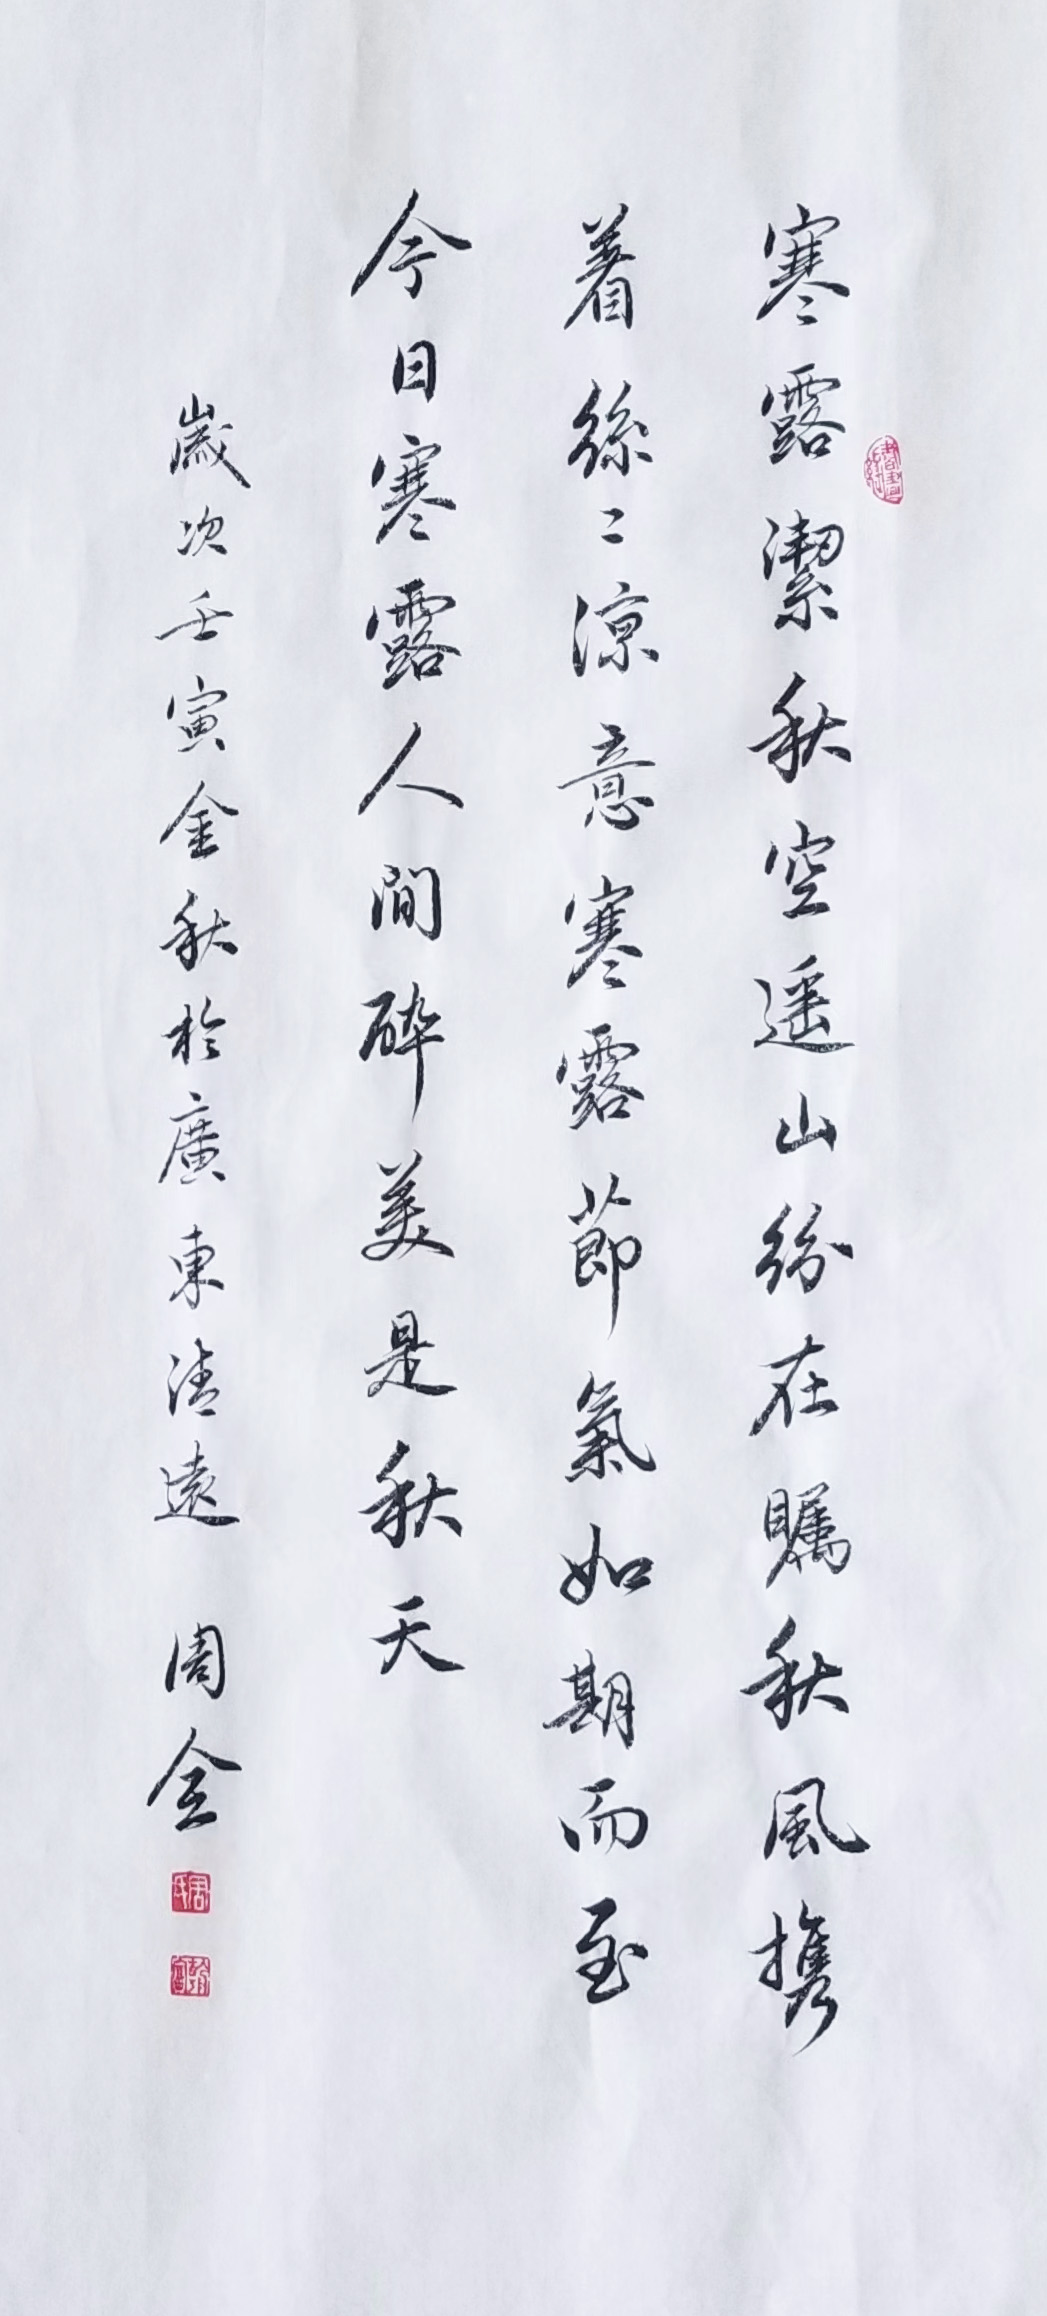 寒露潔秋空遥山紛在矚秋風攜
着絲〻涼意寒露節氣如期而至
今日寒露人間醉美是秋天
歲次壬寅金秋於廣東清遠 周金